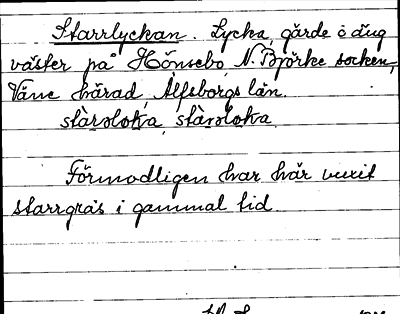 Starrlyckan. Lycka, gärde o äng
väster på Hönsebo, N. Björke socken,
Väne härad, Älfsborgs län.
Förmodligen har här vuxit
starrgräs i gammal tid.